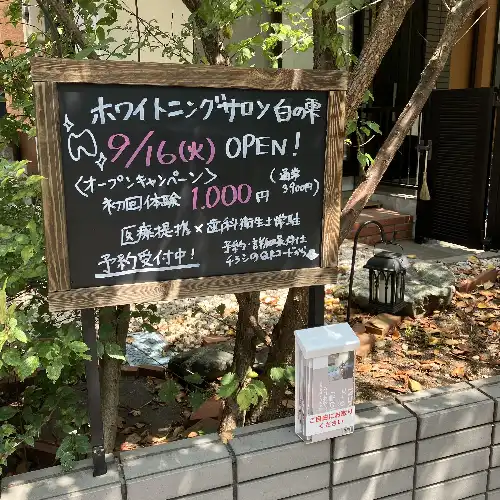 ホワイトニングサロン 白の雫
9/16(火) OPEN!
<オープンキャンペーン>
初回体験 1.000円
(通常
3900円)
医療提携×歯科衛生士常駐
予約受付中!
予約・詳細は
チラシのQRコードから
ご自由にお取り
ください